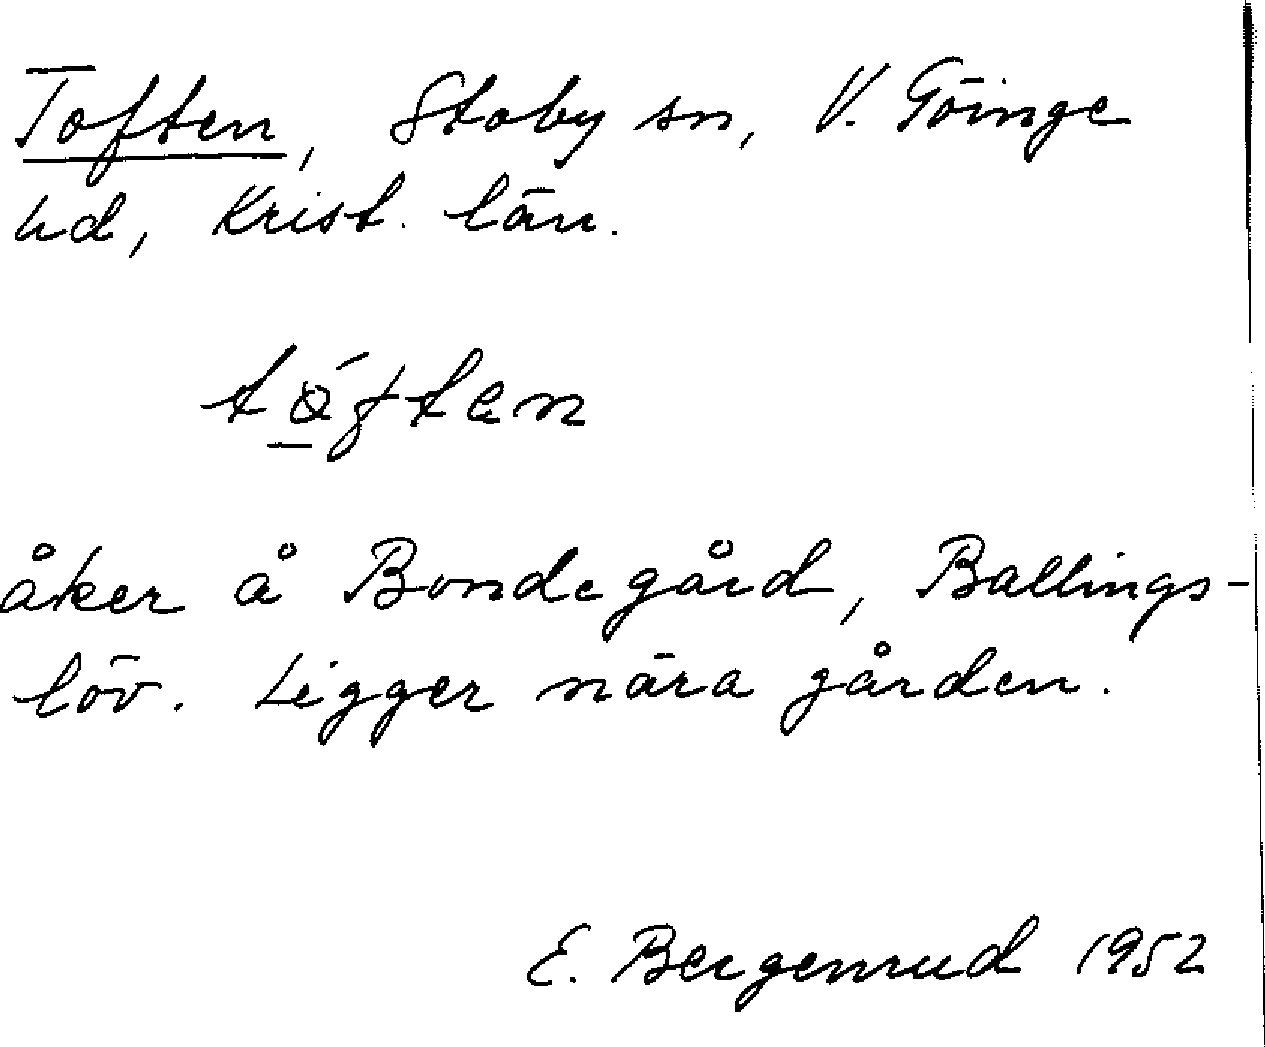 Toften, Stoby sn, V. Göinge
hd, Krist. län.
tǫ́ften
åker å Bondegård, Ballings-
löv. Ligger nära gården.
E. Bergenrud 1952